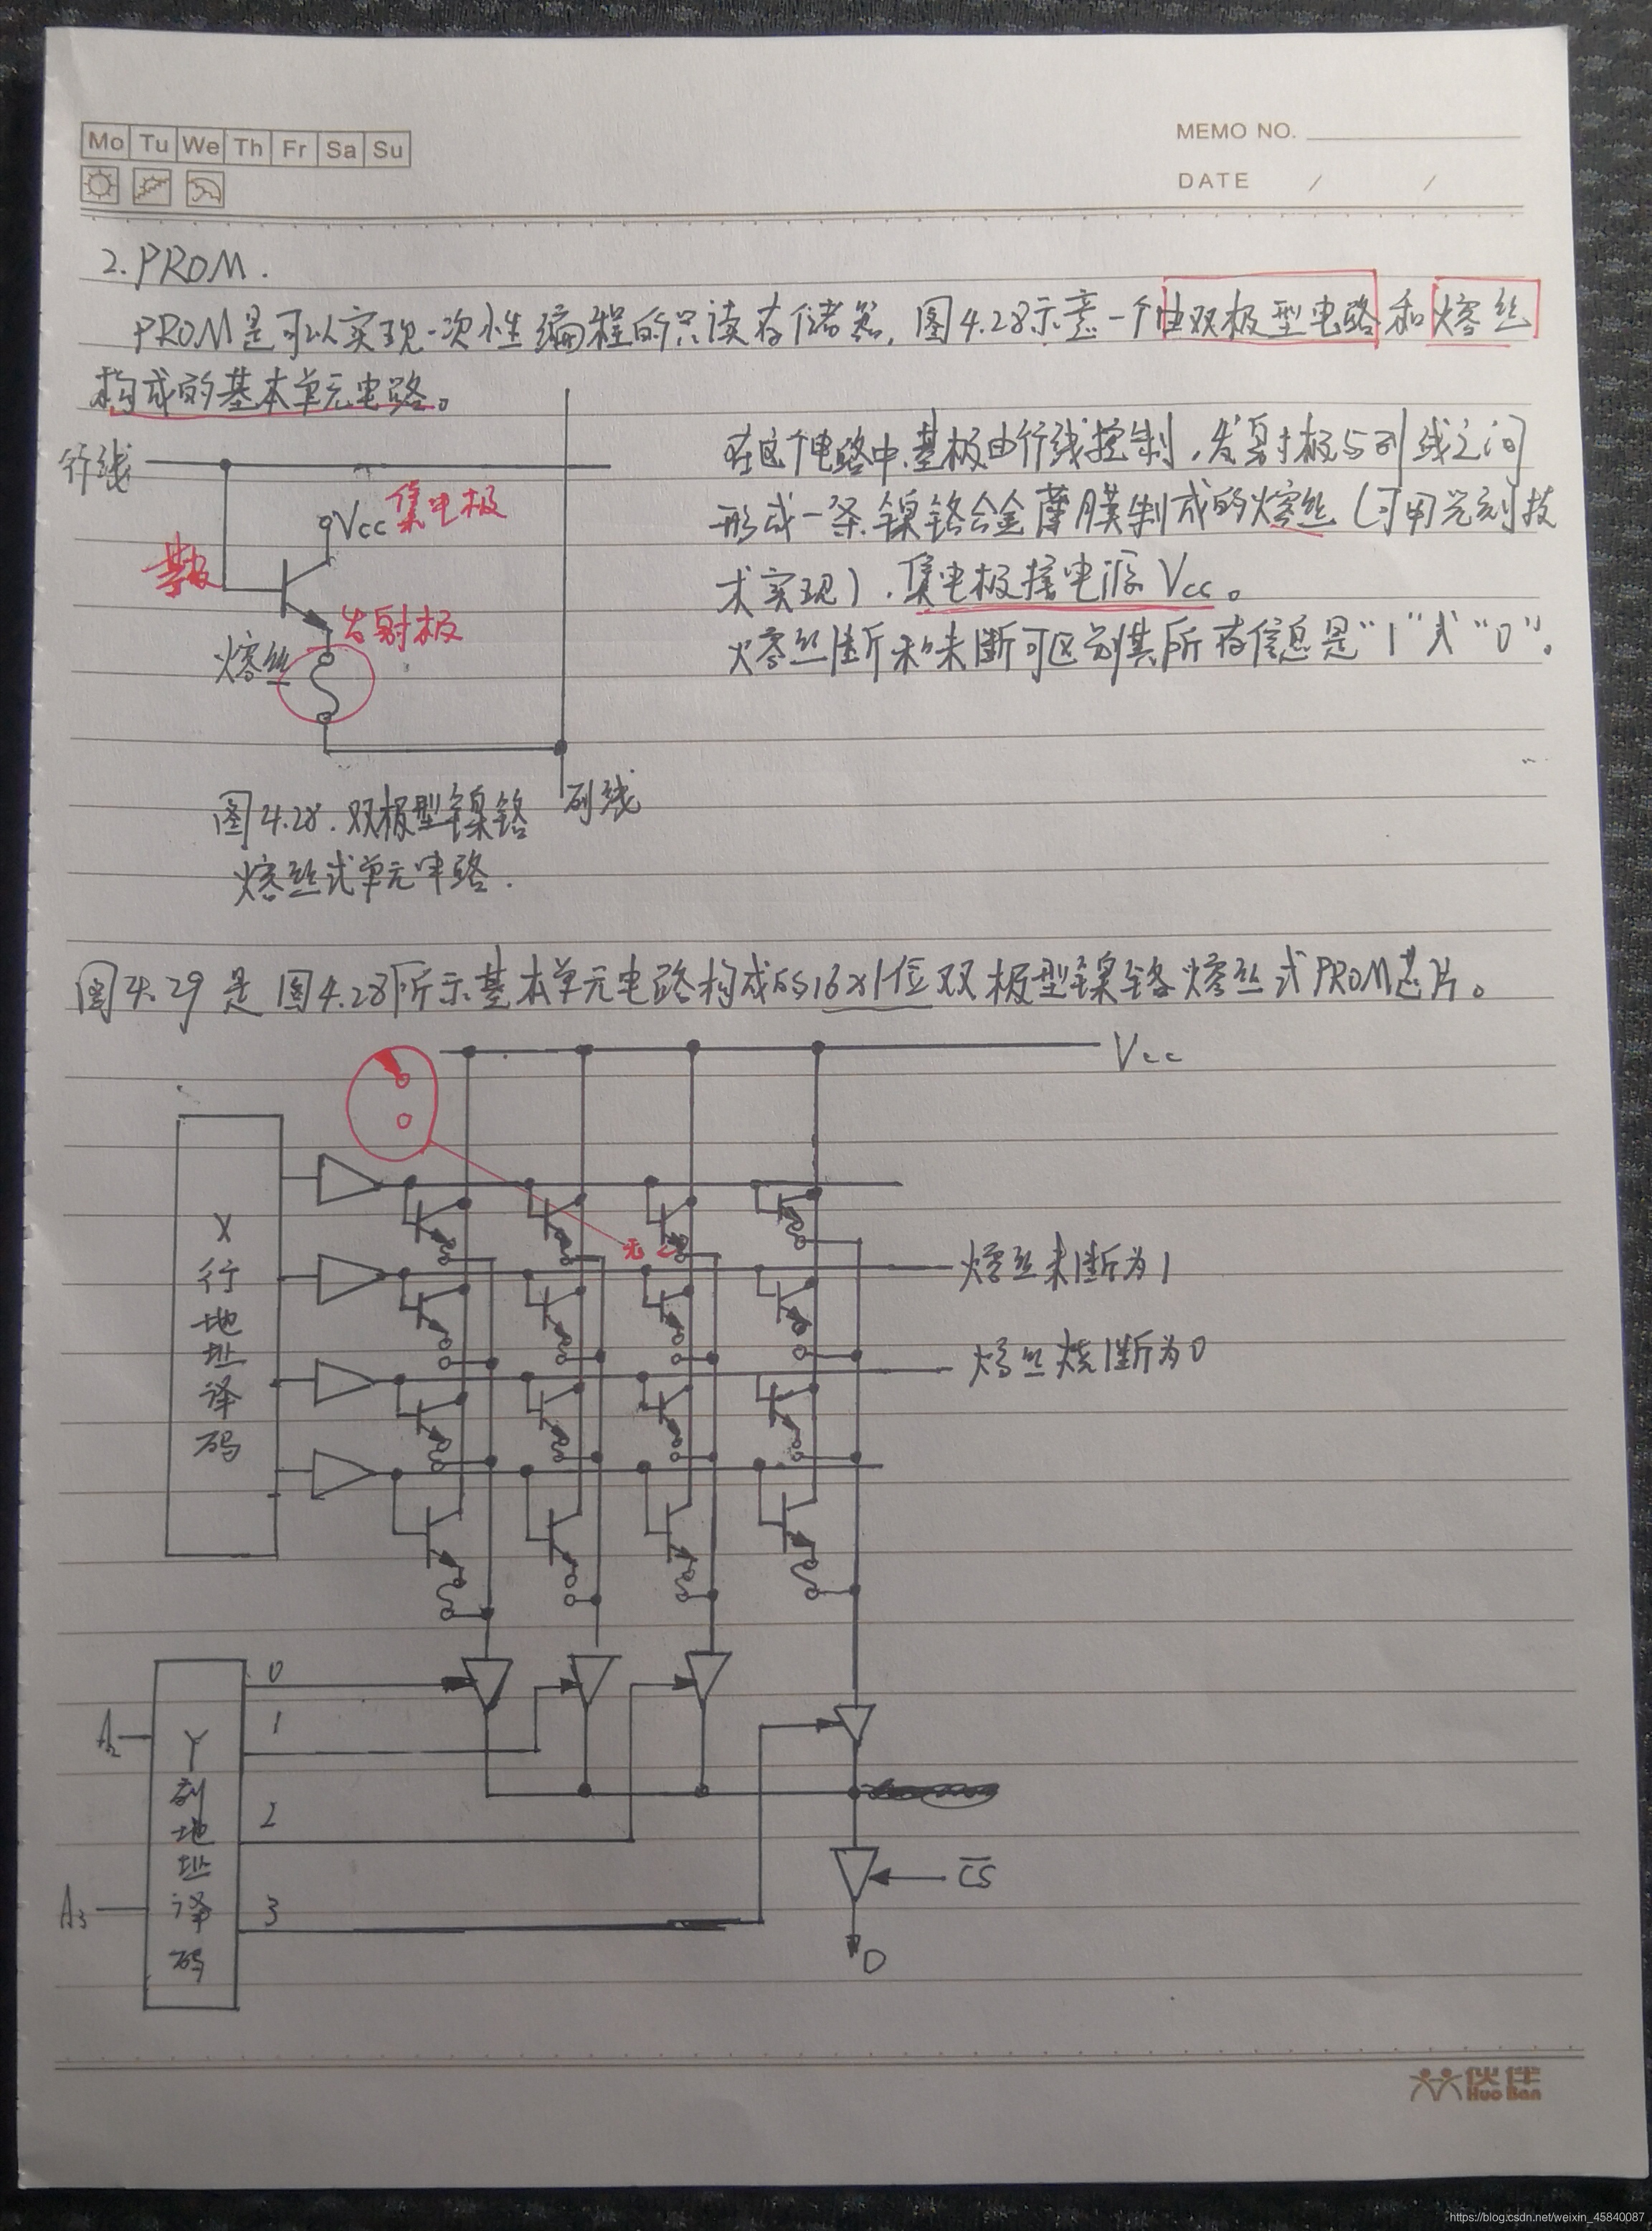 Mo Tu We Th Fr Sa Su
MEMO NO.
DATE / /
2. PROM.
PROM是可以实现一次性编程的只读存储器,图4.28示意一个由双极型电路和熔丝
构成的基本单元电路。
行线
Vcc 集电极
基极
发射极
熔丝
列线
图4.28.双极型镍铬
熔丝式单元电路.
在这个电路中,基极由行线控制,发射极与列线之间
形成一条镍铬合金薄膜制成的熔丝(可用光刻技
术实现),集电极接电源Vcc。
熔丝断和未断可区别其所存信息是"1"或"0"。
图4.29是图4.28所示基本单元电路构成的16x1位双极型镍铬熔丝式PROM芯片。
Vcc
X
行
地
址
译
码
无
熔丝未断为1
熔丝烧断为0
0
1
2
3
A2
A3
Y
列
地
址
译
码
CS
D
伙伴
Huo Ban
https://blog.csdn.net/weixin_45840087